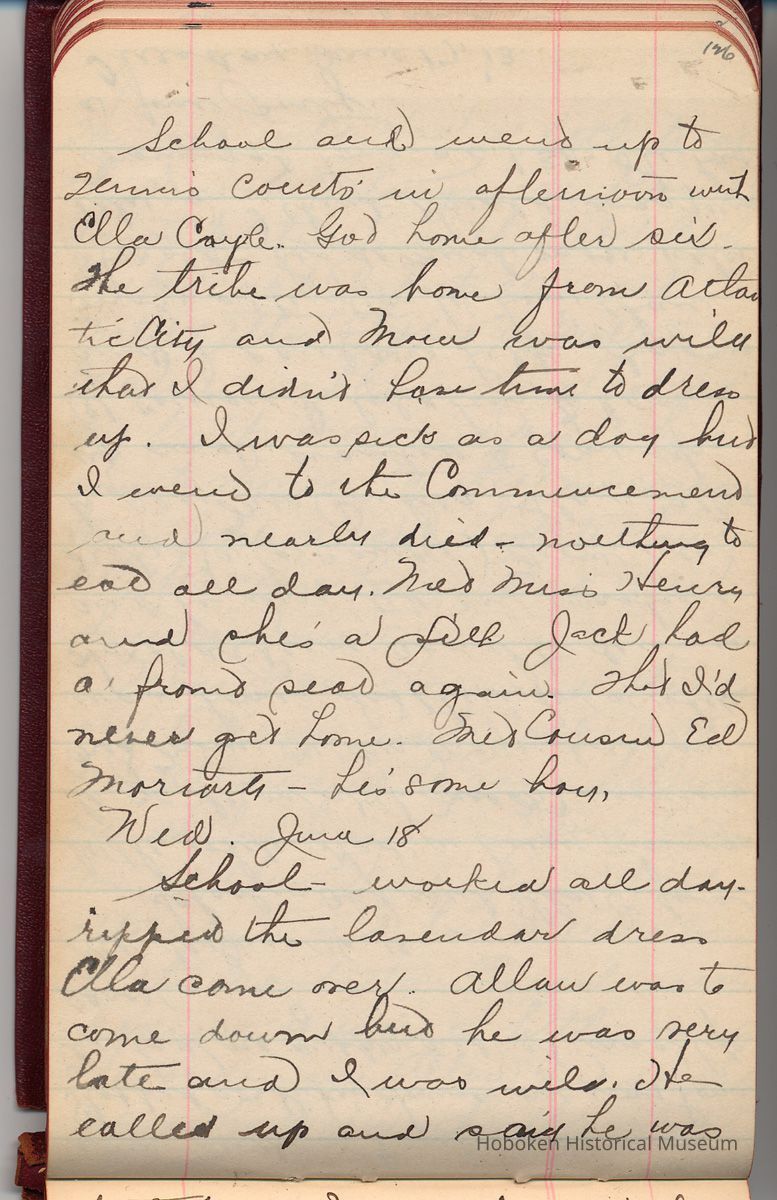 126
School and went up to
tennis courts in afternoon with
Ella Coyle. Got home after six.
The tribe was home from Atlan
tic City and Mom was wild
that I didn't have time to dress
up. I was sick as a dog but
I went to the Commencement
and nearly died - nothing to
eat all day. Met Miss Henry
and she's a pill Jack had
a front seat again. Tho't I'd
never get home. Met Cousin Ed
Moriarty - he's some boy,
Wed. June 18
School - worked all day -
ripped the lavendar dress
Ella come over. Allan was to
come down but he was very
late and I was wild. He
called up and said he was
Hoboken Historical Museum